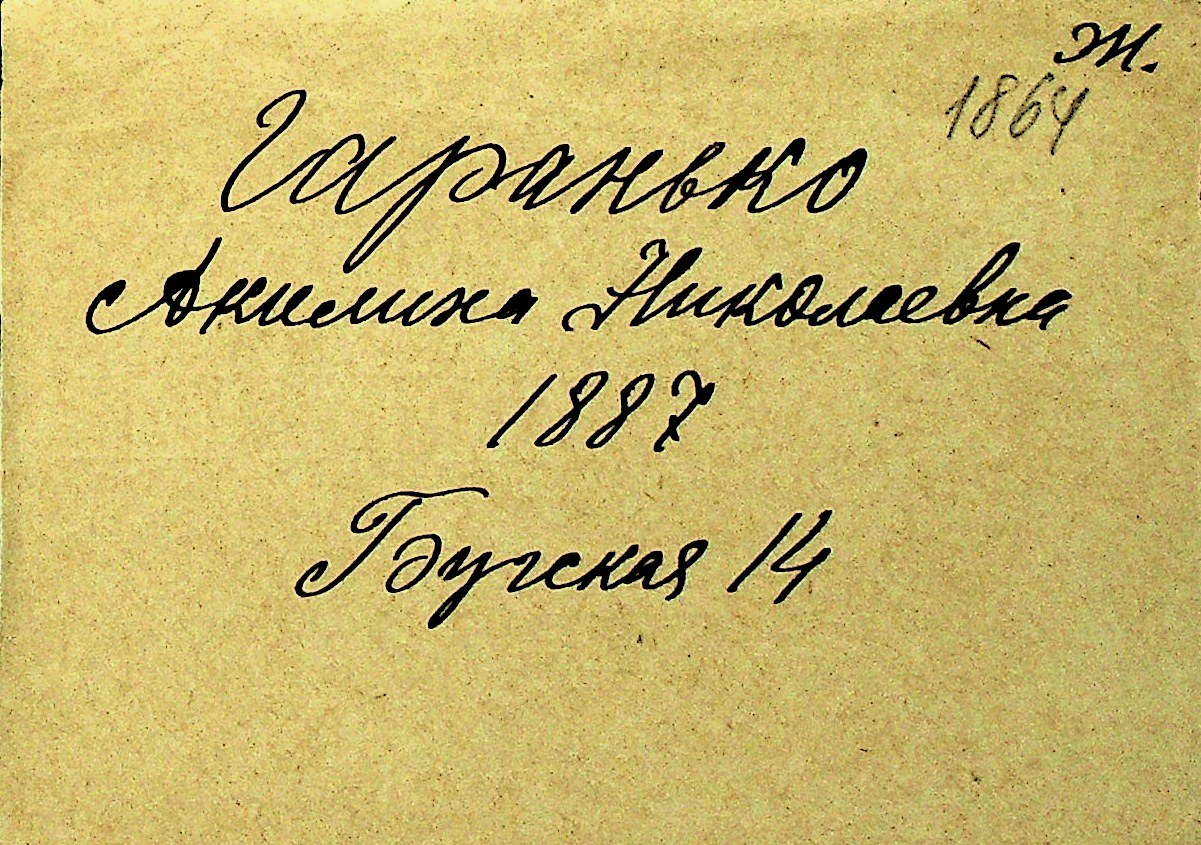 ж.
1864
Гаранько
Акилина Николаевна
1887
Бугская 14